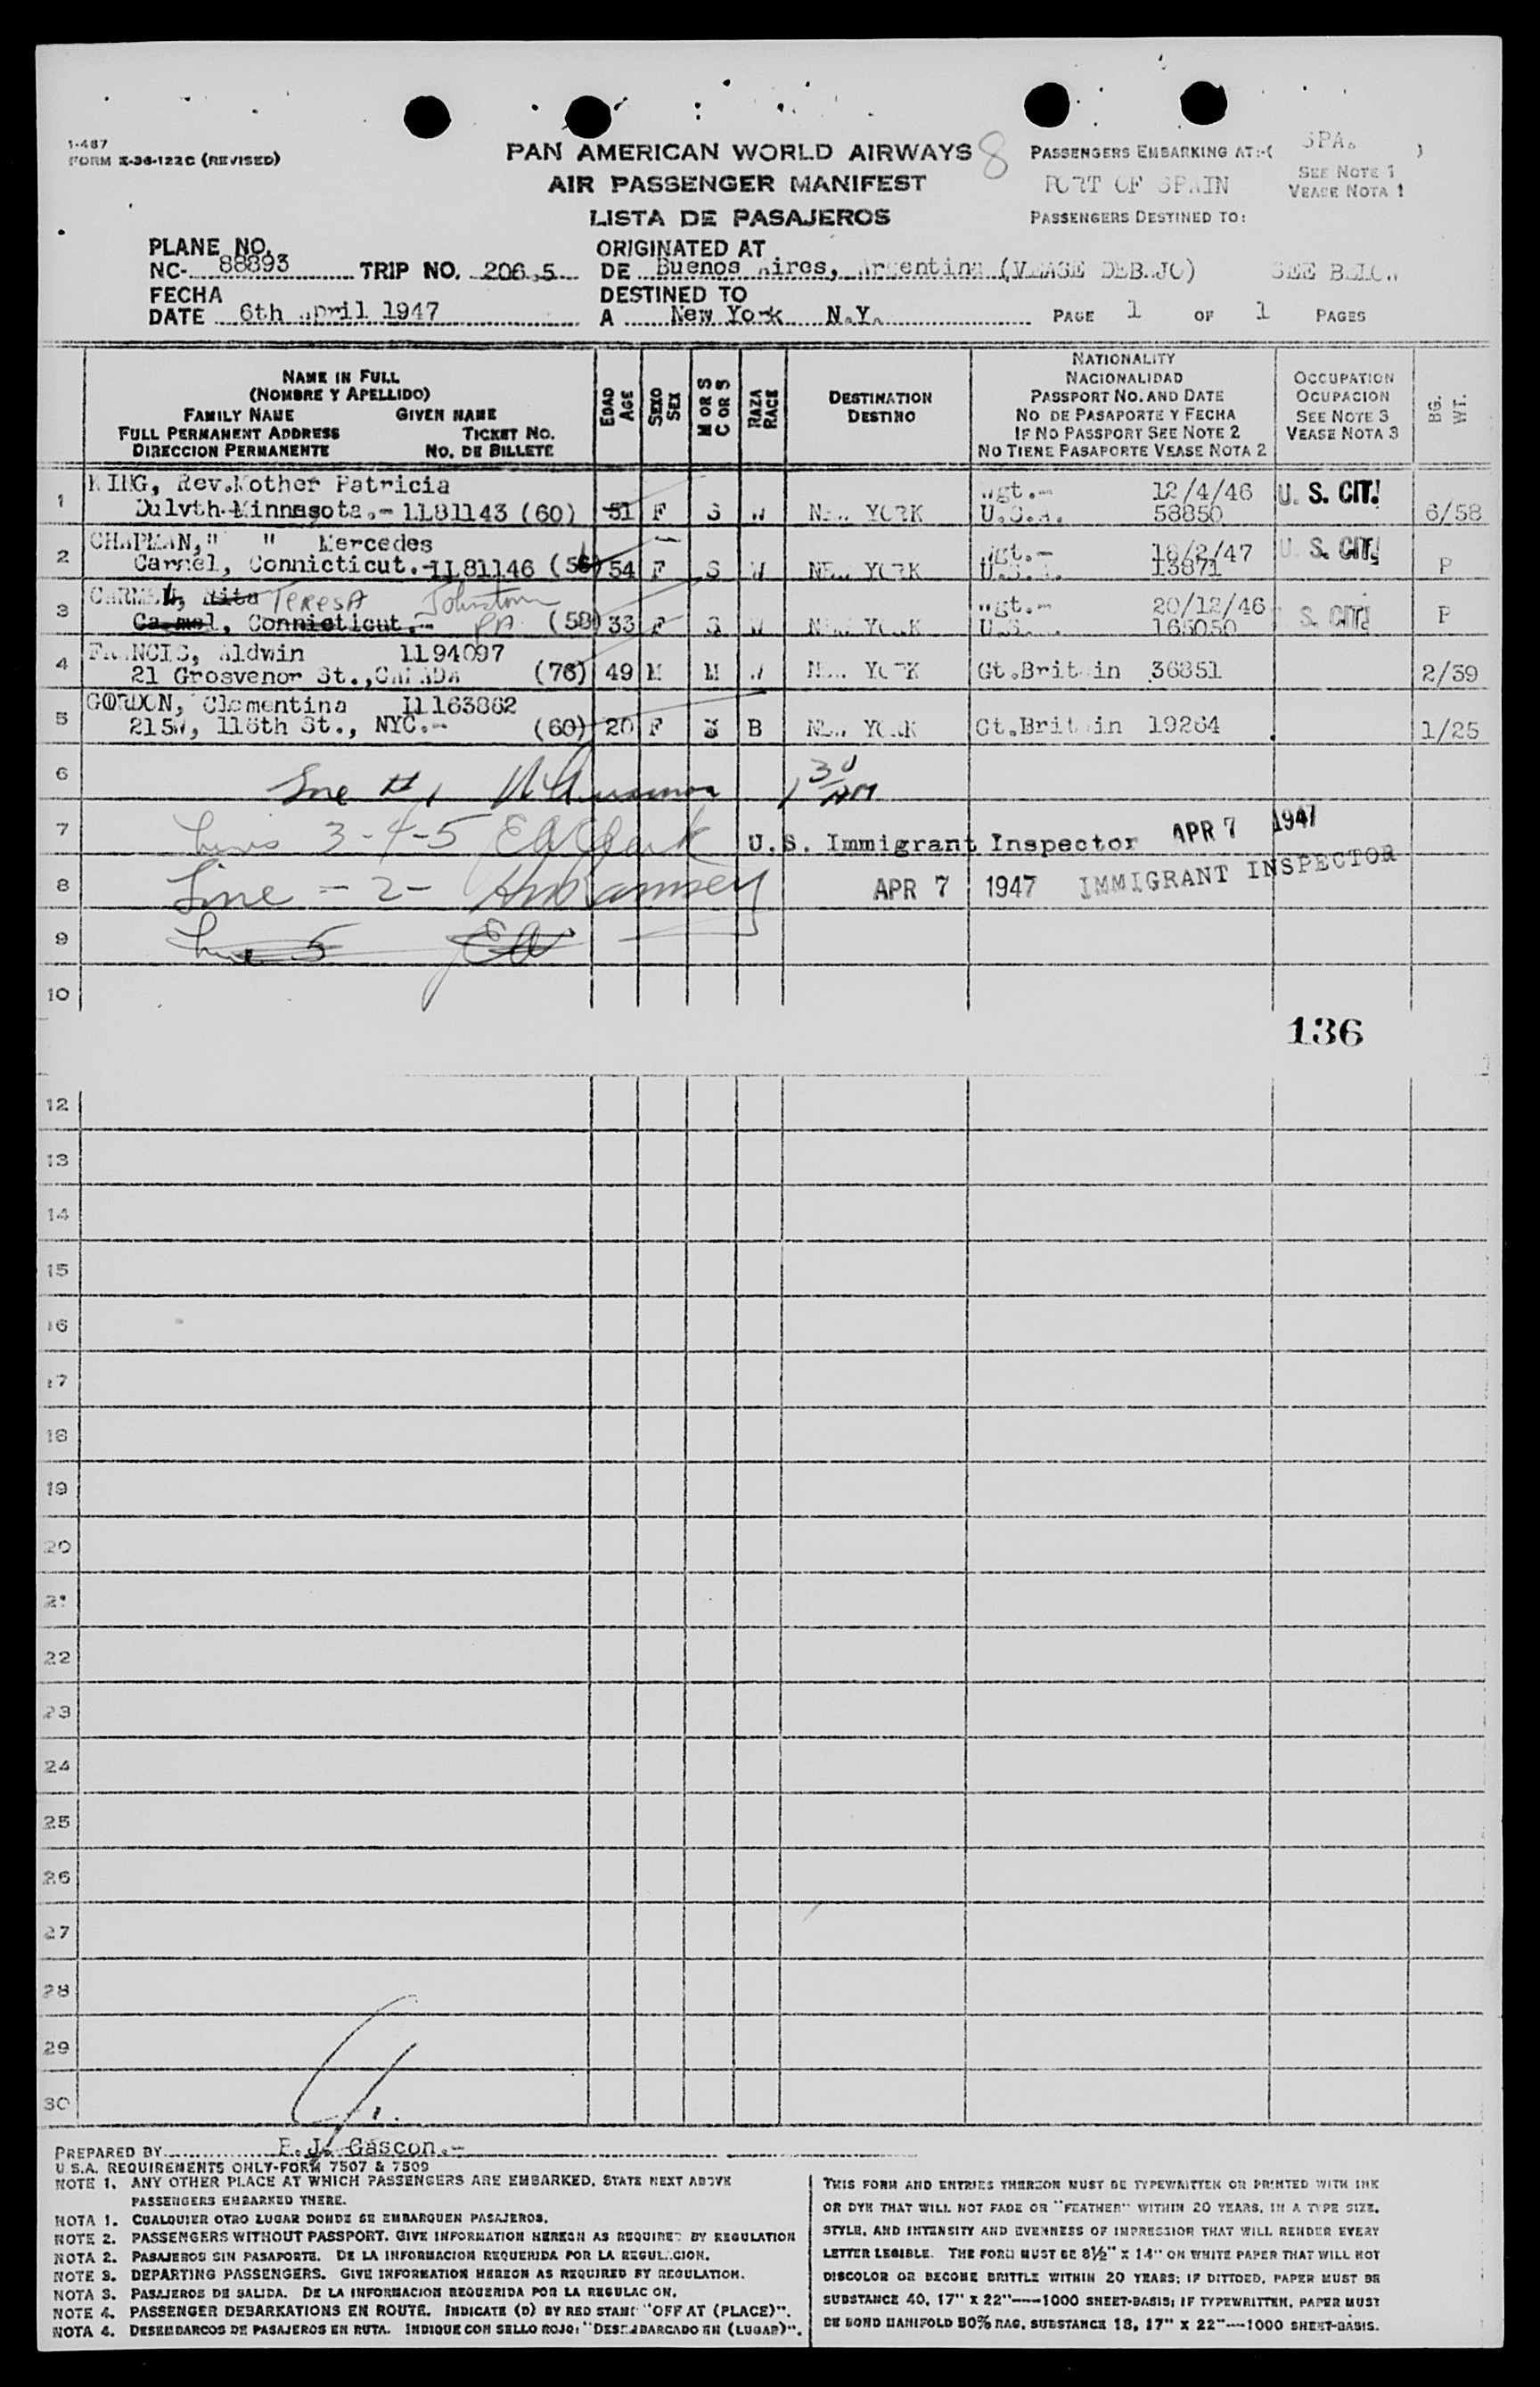 1-487
FORM X-36-122C (REVISED)
PAN AMERICAN WORLD AIRWAYS 8
AIR PASSENGER MANIFEST
LISTA DE PASAJEROS
PASSENGERS EMBARKING AT:-( SPA. )
PORT OF SPAIN
SEE NOTE 1
VEASE NOTA 1
PASSENGERS DESTINED TO:
PLANE NO.
NC- 88893 TRIP NO. 206.5
ORIGINATED AT
DE Buenos Aires, Argentina (VEASE DEBAJO) SEE BELOW
FECHA
DATE 6th April 1947
DESTINED TO
A New York N.Y.
PAGE 1 OF 1 PAGES
NAME IN FULL
(NOMBRE Y APELLIDO)
FAMILY NAME GIVEN NAME
FULL PERMANENT ADDRESS TICKET NO.
DIRECCION PERMANENTE NO. DE BILLETE
EDAD
AGE
SEXO
SEX
M OR S
C OR S
RAZA
RACE
DESTINATION
DESTINO
NATIONALITY
NACIONALIDAD
PASSPORT NO. AND DATE
NO DE PASAPORTE Y FECHA
IF NO PASSPORT SEE NOTE 2
NO TIENE PASAPORTE VEASE NOTA 2
OCCUPATION
OCUPACION
SEE NOTE 3
VEASE NOTA 3
BG.
WT.
KING, Rev.Mother Patricia Wgt.- 12/4/46 U. S. CIT.
1 Dulvth-Minnesota.- 1L81143 (60) 51 F S W NEW YORK U.S.A. 58850 6/58
CHAPMAN," " Mercedes Wgt.- 18/2/47 U. S. CIT.
2 Carmel, Connicticut.-1L81146 (56) 54 F S W NEW YORK U.S.A. 13871 P
Rita TERESA Johnstown Wgt.- 20/12/46 S. CIT.
3 Carmel, Connicticut.- PA (58) 33 F S W NEW YORK U.S.A. 165050 P
FRANCIS, Aldwin 1L94097
4 21 Grosvenor St.,CANADA (76) 49 M M W NEW YORK Gt.Britain 36851 2/39
GORDON, Clementina 1L163862
5 215W, 116th St., NYC.- (60) 20 F B NEW YORK Gt.Britain 19264 1/25
6 Line # 1 1 30 AM
7 Lines 3-4-5 EA Clark U.S. Immigrant Inspector APR 7 1947
8 Line - 2 - HM Ramsey APR 7 1947 IMMIGRANT INSPECTOR
9 Line 5 EA
10
136
12
13
14
15
16
17
18
19
20
21
22
23
24
25
26
27
28
29
30
PREPARED BY E.J. Gascon.-
U.S.A. REQUIREMENTS ONLY-FORM 7507 & 7509
NOTE 1. ANY OTHER PLACE AT WHICH PASSENGERS ARE EMBARKED. STATE NEXT ABOVE
PASSENGERS EMBARKED THERE.
NOTA 1. CUALQUIER OTRO LUGAR DONDE SE EMBARQUEN PASAJEROS.
NOTE 2. PASSENGERS WITHOUT PASSPORT. GIVE INFORMATION HEREON AS REQUIRED BY REGULATION
NOTA 2. PASAJEROS SIN PASAPORTE. DE LA INFORMACION REQUERIDA POR LA REGULACION.
NOTE 3. DEPARTING PASSENGERS. GIVE INFORMATION HEREON AS REQUIRED BY REGULATION.
NOTA 3. PASAJEROS DE SALIDA. DE LA INFORMACION REQUERIDA POR LA REGULACION.
NOTE 4. PASSENGER DEBARKATIONS EN ROUTE. INDICATE (D) BY RED STAMP "OFF AT (PLACE)".
NOTA 4. DESEMBARCOS DE PASAJEROS EN RUTA. INDIQUE CON SELLO ROJO: "DESEMBARCADO EN (LUGAR)".
THIS FORM AND ENTRIES THEREON MUST BE TYPEWRITTEN OR PRINTED WITH INK
OR DYE THAT WILL NOT FADE OR "FEATHER" WITHIN 20 YEARS, IN A TYPE SIZE,
STYLE, AND INTENSITY AND EVENNESS OF IMPRESSION THAT WILL RENDER EVERY
LETTER LEGIBLE. THE FORM MUST BE 8½" X 14" ON WHITE PAPER THAT WILL NOT
DISCOLOR OR BECOME BRITTLE WITHIN 20 YEARS; IF DITTOED, PAPER MUST BE
SUBSTANCE 40, 17" X 22"----1000 SHEET-BASIS; IF TYPEWRITTEN, PAPER MUST
BE BOND MANIFOLD 50% RAG, SUBSTANCE 18, 17" X 22"---1000 SHEET-BASIS.